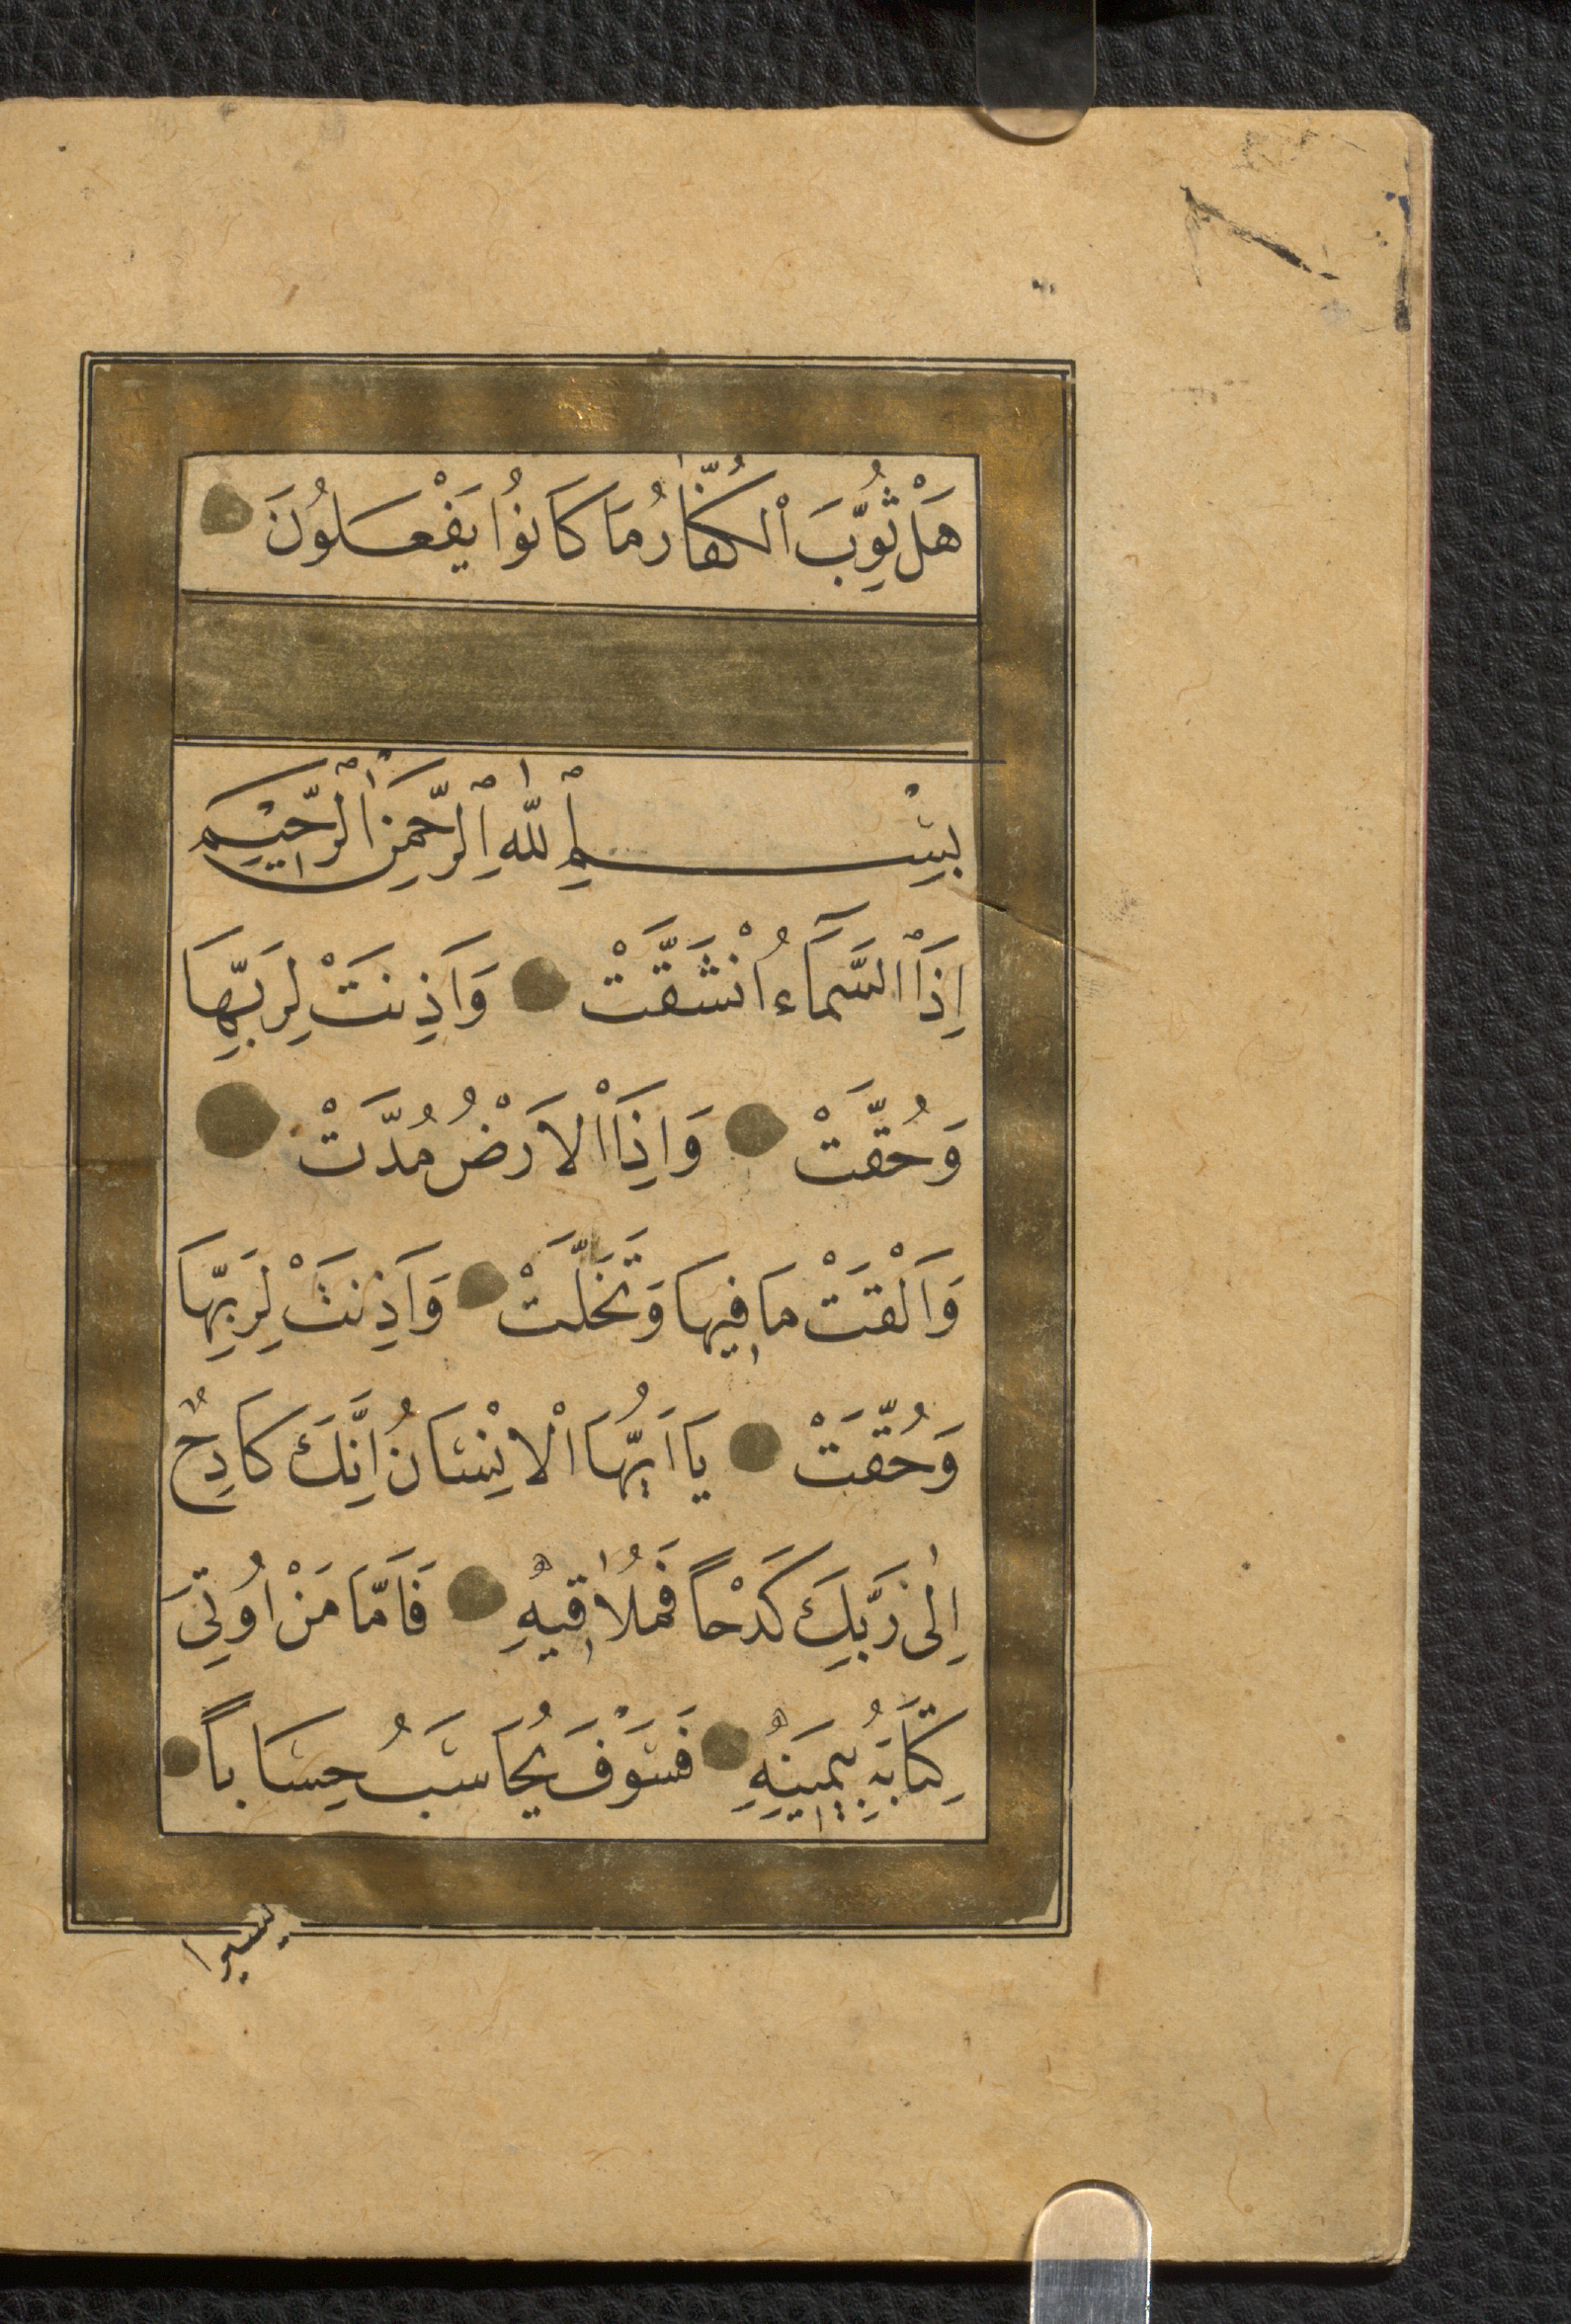 هَلْ ثُوِّبَ الْكُفَّارُ مَا كَانُوا يَفْعَلُونَ
بِسْمِ اللّٰهِ الرَّحْمٰنِ الرَّحِيْمِ
اِذَا السَّمَآءُ انْشَقَّتْ وَاَذِنَتْ لِرَبِّهَا
وَحُقَّتْ وَاِذَا الْاَرْضُ مُدَّتْ
وَاَلْقَتْ مَا فِيهَا وَتَخَلَّتْ وَاَذِنَتْ لِرَبِّهَا
وَحُقَّتْ يَا اَيُّهَا الْاِنْسَانُ اِنَّكَ كَادِحٌ
اِلٰى رَبِّكَ كَدْحًا فَمُلَاقِيهِ فَاَمَّا مَنْ اُوتِيَ
كِتَابَهُ بِيَمِينِهِ فَسَوْفَ يُحَاسَبُ حِسَابًا
يسيرا